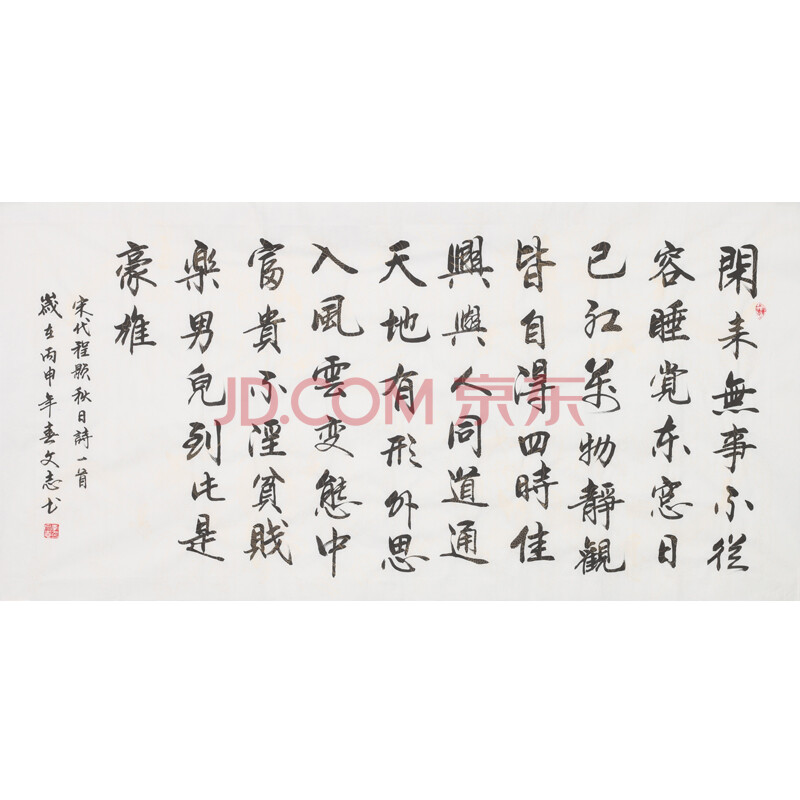 閑来無事不從
容睡覚东窓日
已红萬物靜觀
皆自得四時佳
興與人同道通
天地有形外思
入風雲变態中
富貴不淫貧賤
樂男兒到此是
豪雄
宋代程颢秋日詩一首
歲在丙申年春文志书
JD.COM 京东